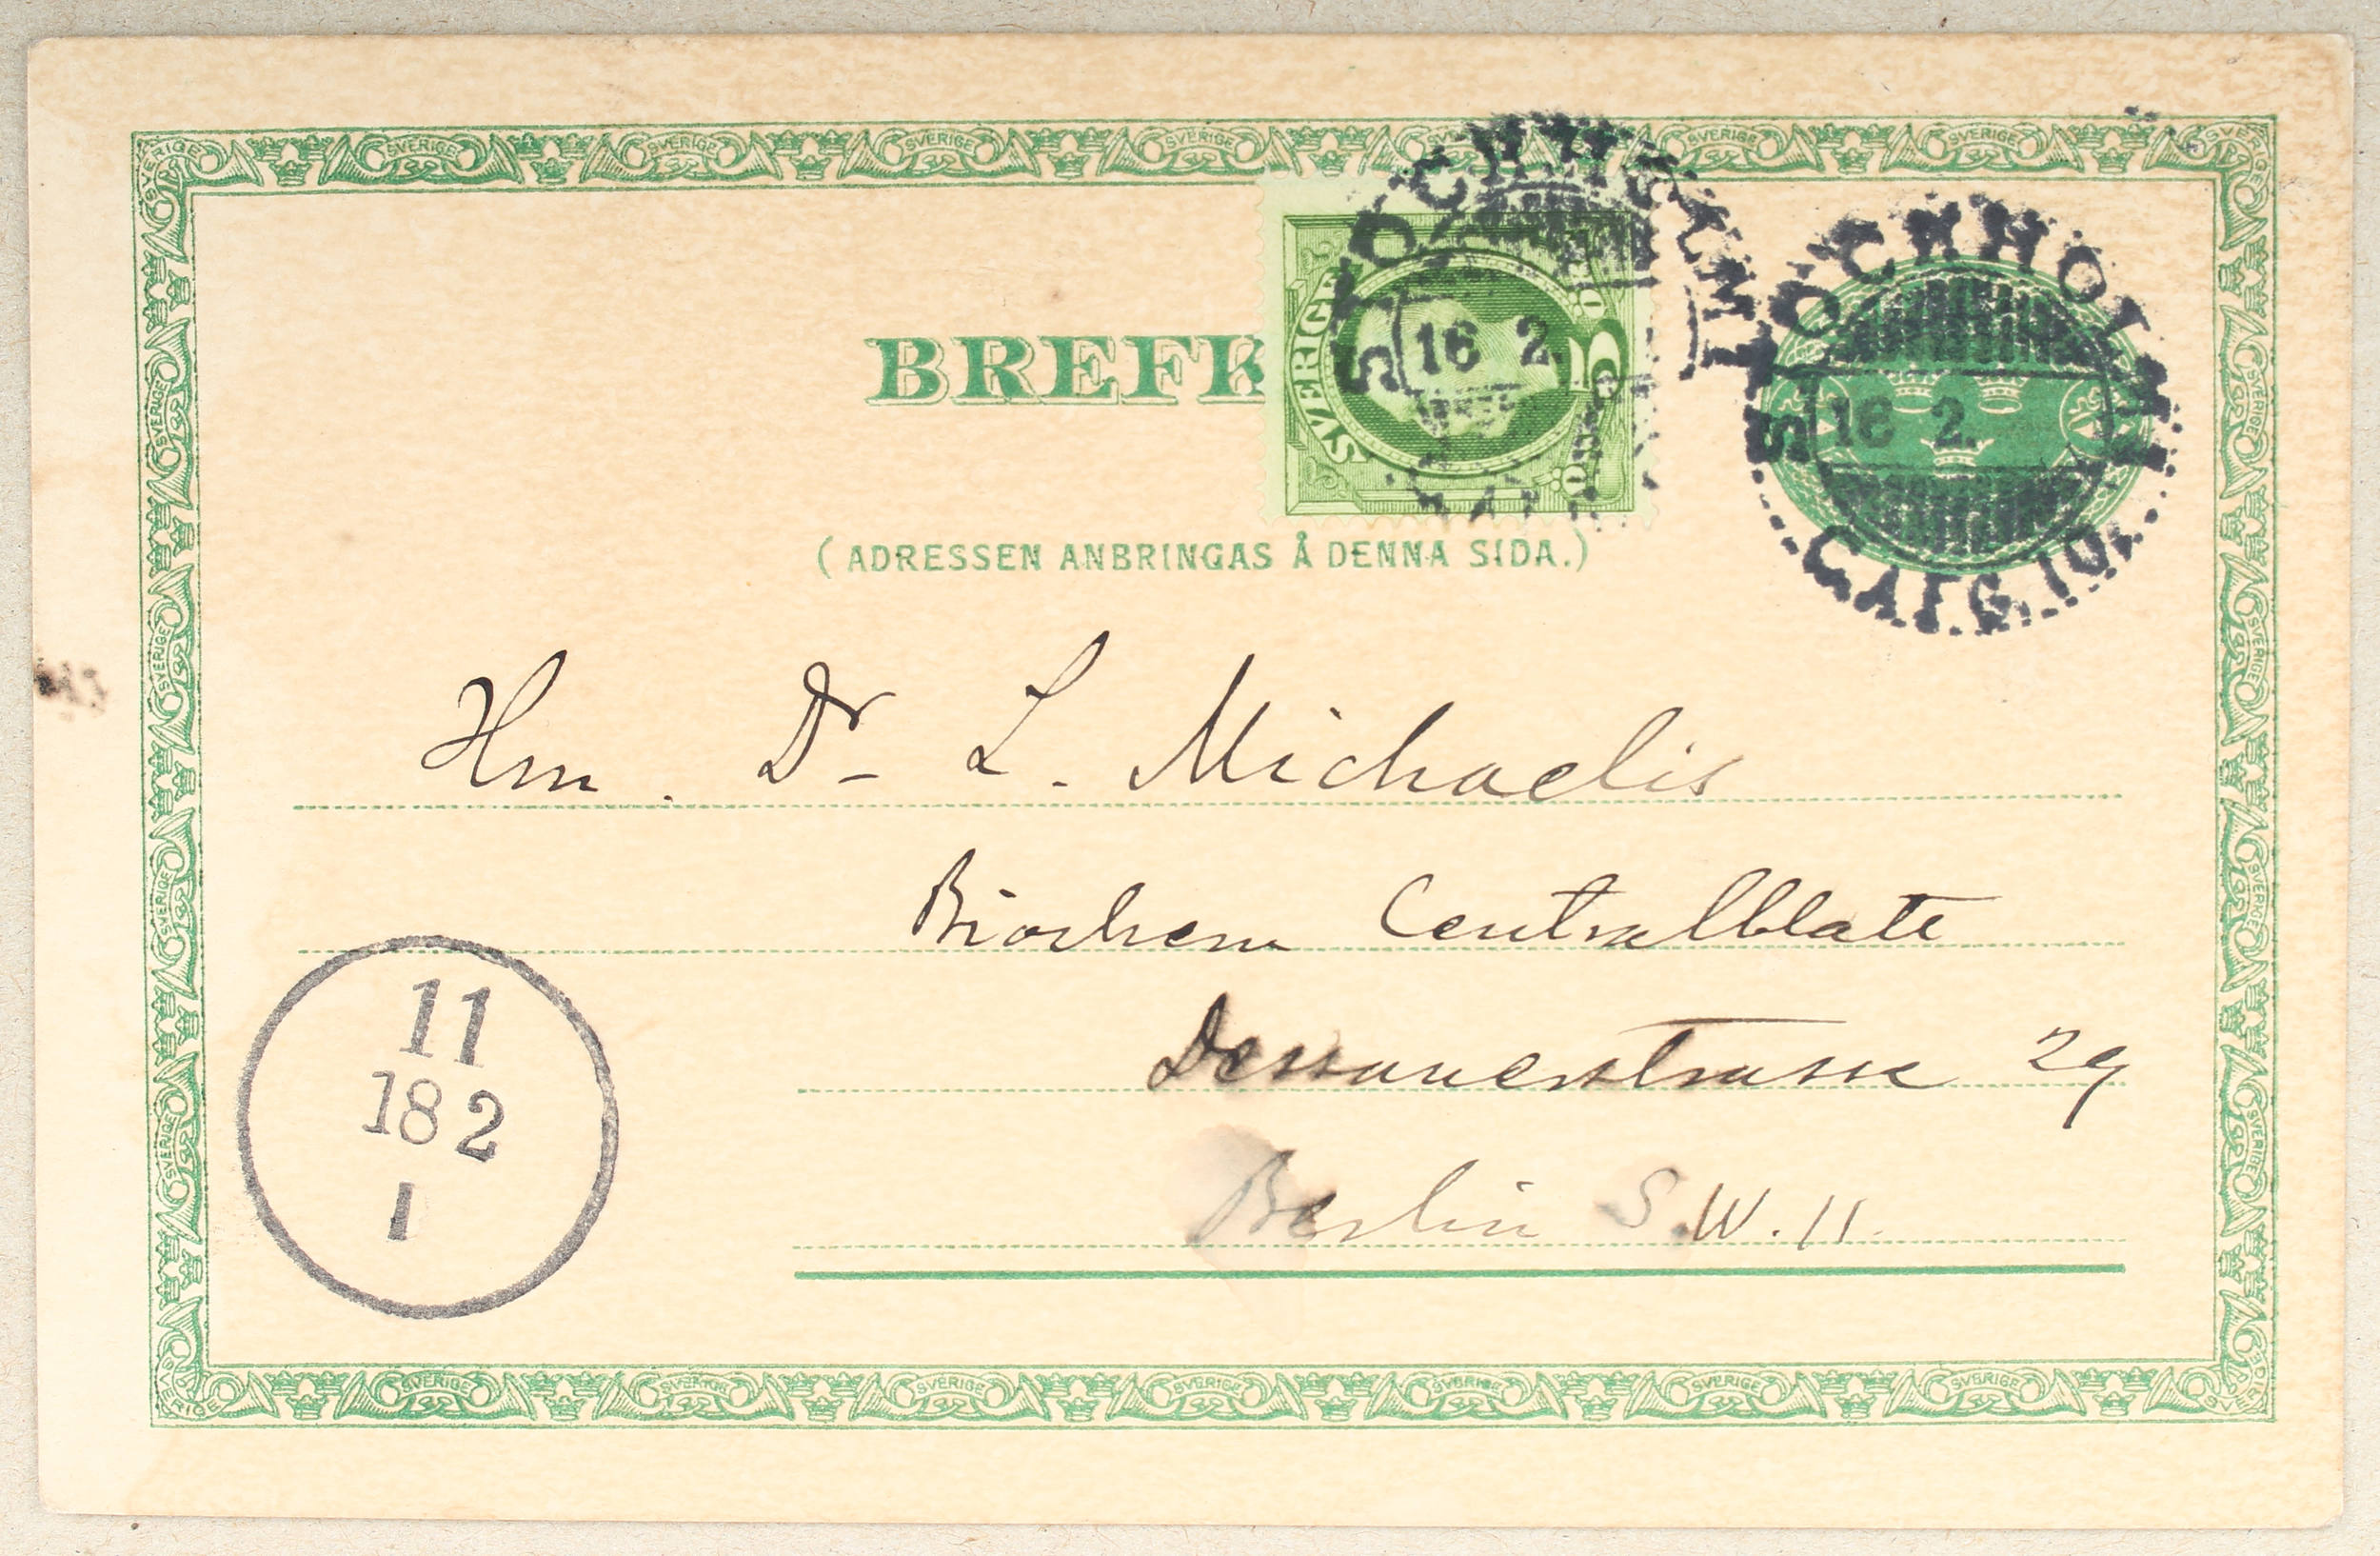 BREFK
SVERIGE
STOCKHOLM 1
16 2.
STOCKHOLM 1
16 2.
C.AFG.10.
(ADRESSEN ANBRINGAS Å DENNA SIDA.)
Hrn. Dr L. Michaelis
Biochem Centralblatt
Dessauerstrasse 29
Berlin S.W. 11.
11
18 2
1